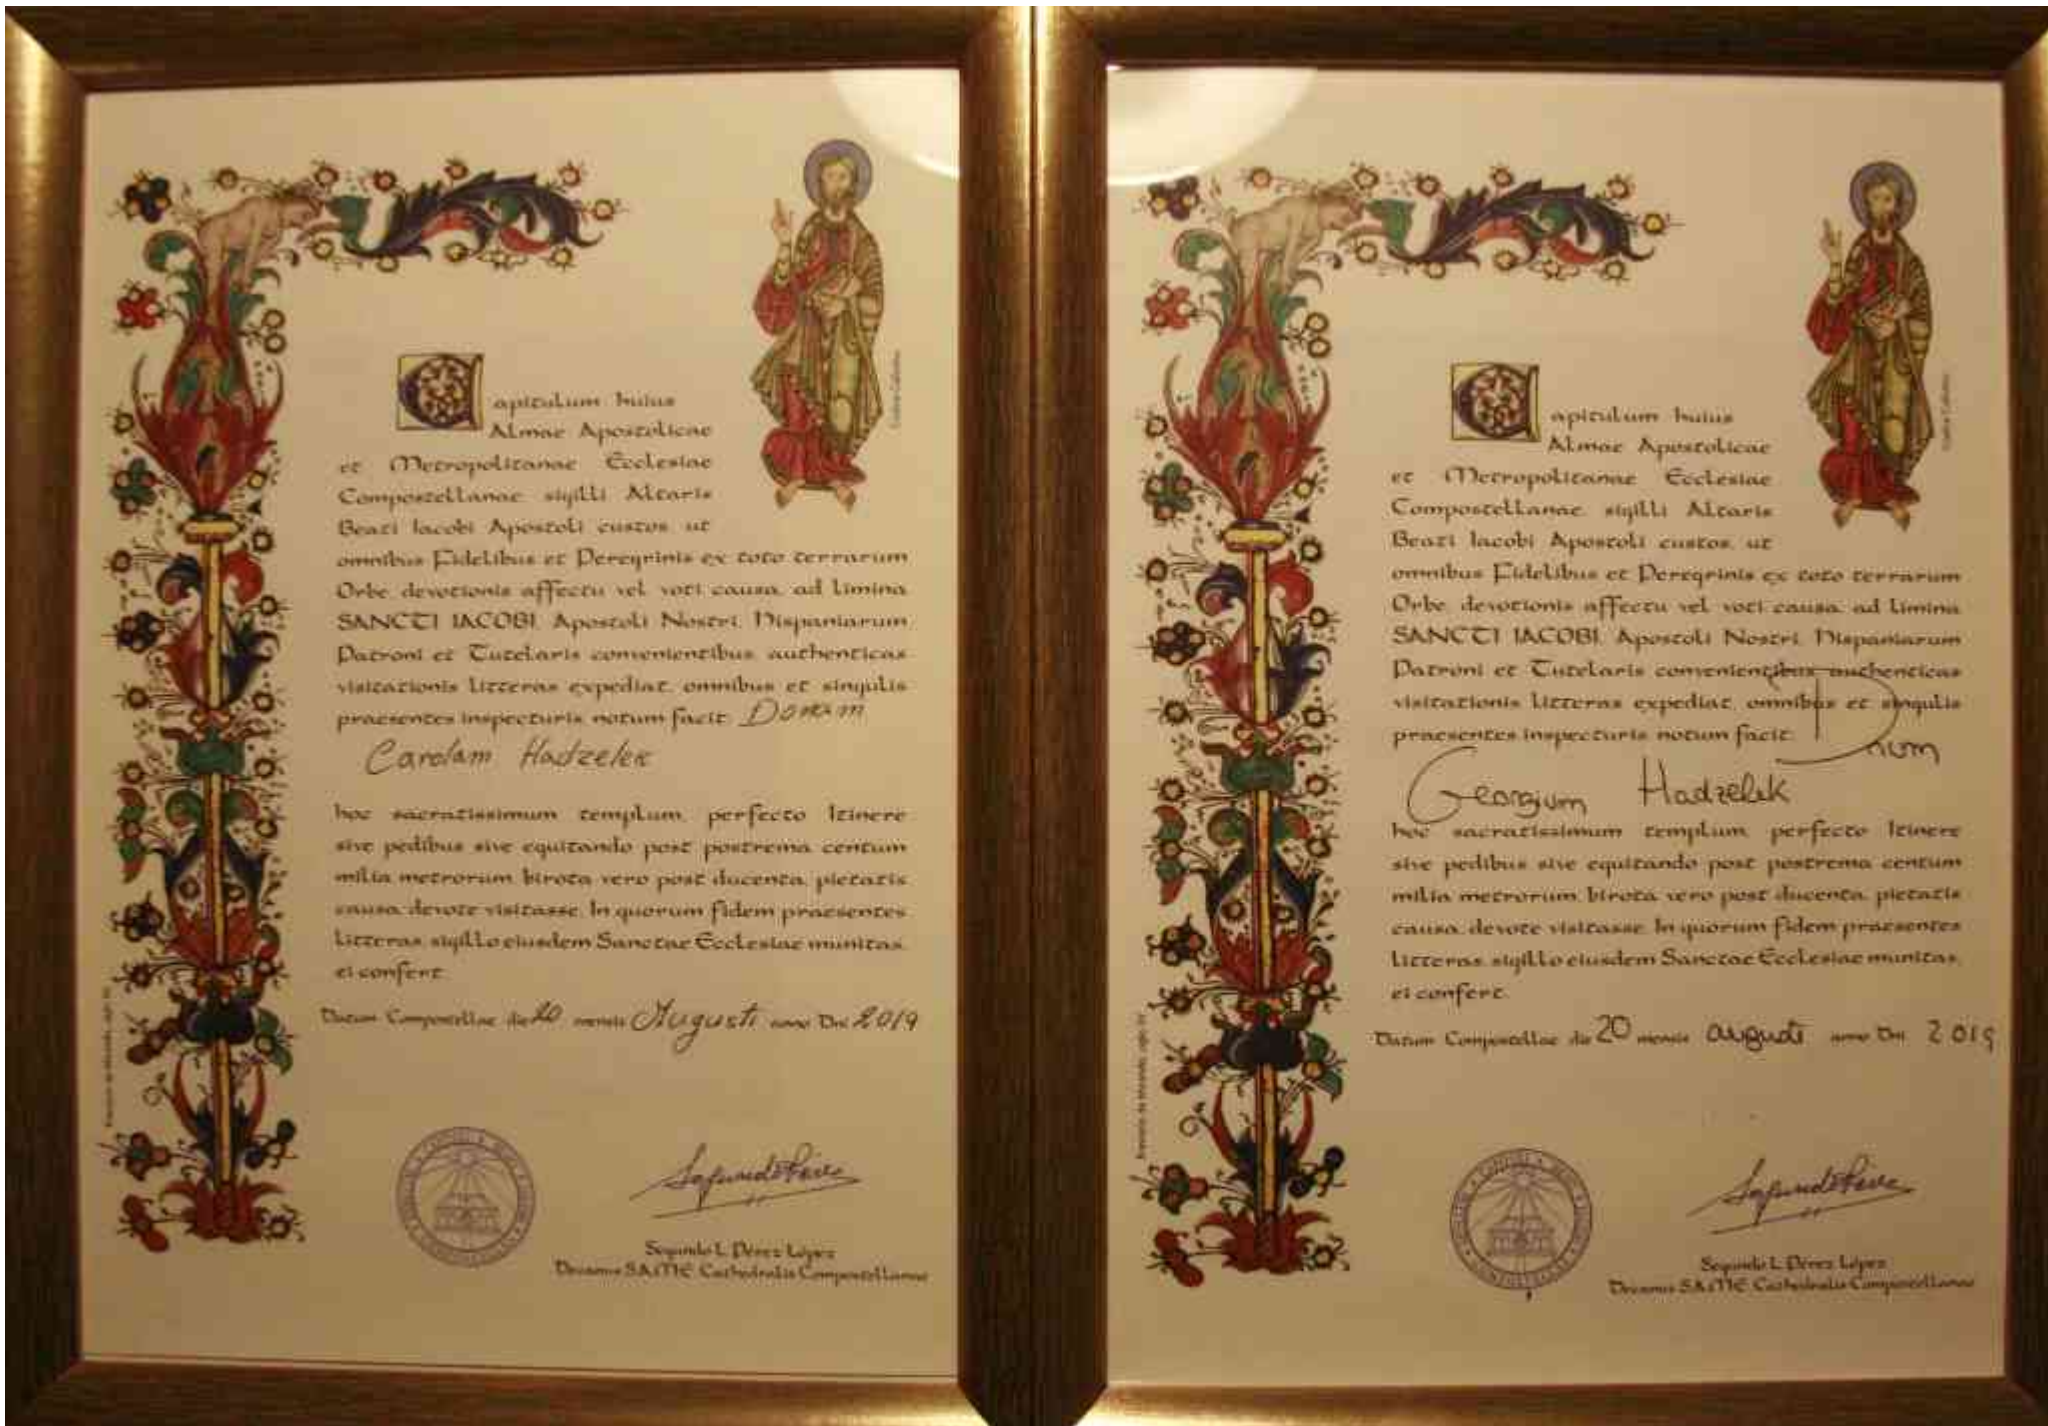 Capitulum huius
Almae Apostolicae
et Metropolitanae Ecclesiae
Compostellanae sigilli Altaris
Beati Iacobi Apostoli custos, ut
omnibus Fidelibus et Peregrinis ex toto terrarum
Orbe, devotionis affectu vel voti causa, ad limina
SANCTI IACOBI, Apostoli Nostri, Hispaniarum
Patroni et Tutelaris convenientibus, authenticas
visitationis litteras expediat, omnibus et singulis
praesentes inspecturis notum facit: Donam
Carolam Hadzelek
hoc sacratissimum templum, perfecto Itinere
sive pedibus sive equitando post postrema centum
milia metrorum, birota vero post ducenta, pietatis
causa, devote visitasse. In quorum fidem praesentes
litteras, sigillo eiusdem Sanctae Ecclesiae munitas,
ei confert.
Datum Compostellae die 20 mensis Augusti anno Dni 2019
Segundo L. Pérez López
Decanus S.A.M.E. Cathedralis Compostellanae
Capitulum huius
Almae Apostolicae
et Metropolitanae Ecclesiae
Compostellanae sigilli Altaris
Beati Iacobi Apostoli custos, ut
omnibus Fidelibus et Peregrinis ex toto terrarum
Orbe, devotionis affectu vel voti causa, ad limina
SANCTI IACOBI, Apostoli Nostri, Hispaniarum
Patroni et Tutelaris convenientibus, authenticas
visitationis litteras expediat, omnibus et singulis
praesentes inspecturis notum facit: Dnum
Georgium Hadzelek
hoc sacratissimum templum, perfecto Itinere
sive pedibus sive equitando post postrema centum
milia metrorum, birota vero post ducenta, pietatis
causa, devote visitasse. In quorum fidem praesentes
litteras, sigillo eiusdem Sanctae Ecclesiae munitas,
ei confert.
Datum Compostellae die 20 mensis augusti anno Dni 2019
Segundo L. Pérez López
Decanus S.A.M.E. Cathedralis Compostellanae